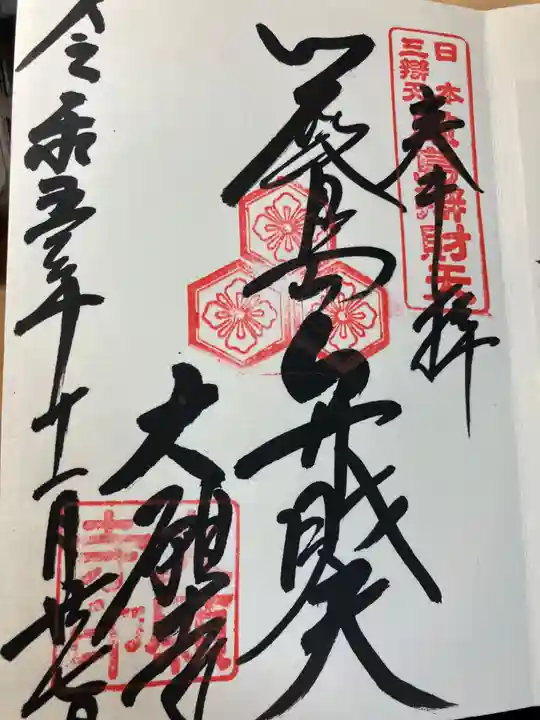 日本
三辯天
嚴島辨財天
奉拝
嚴島弁財天
大願寺
令和五年十一月廿七日